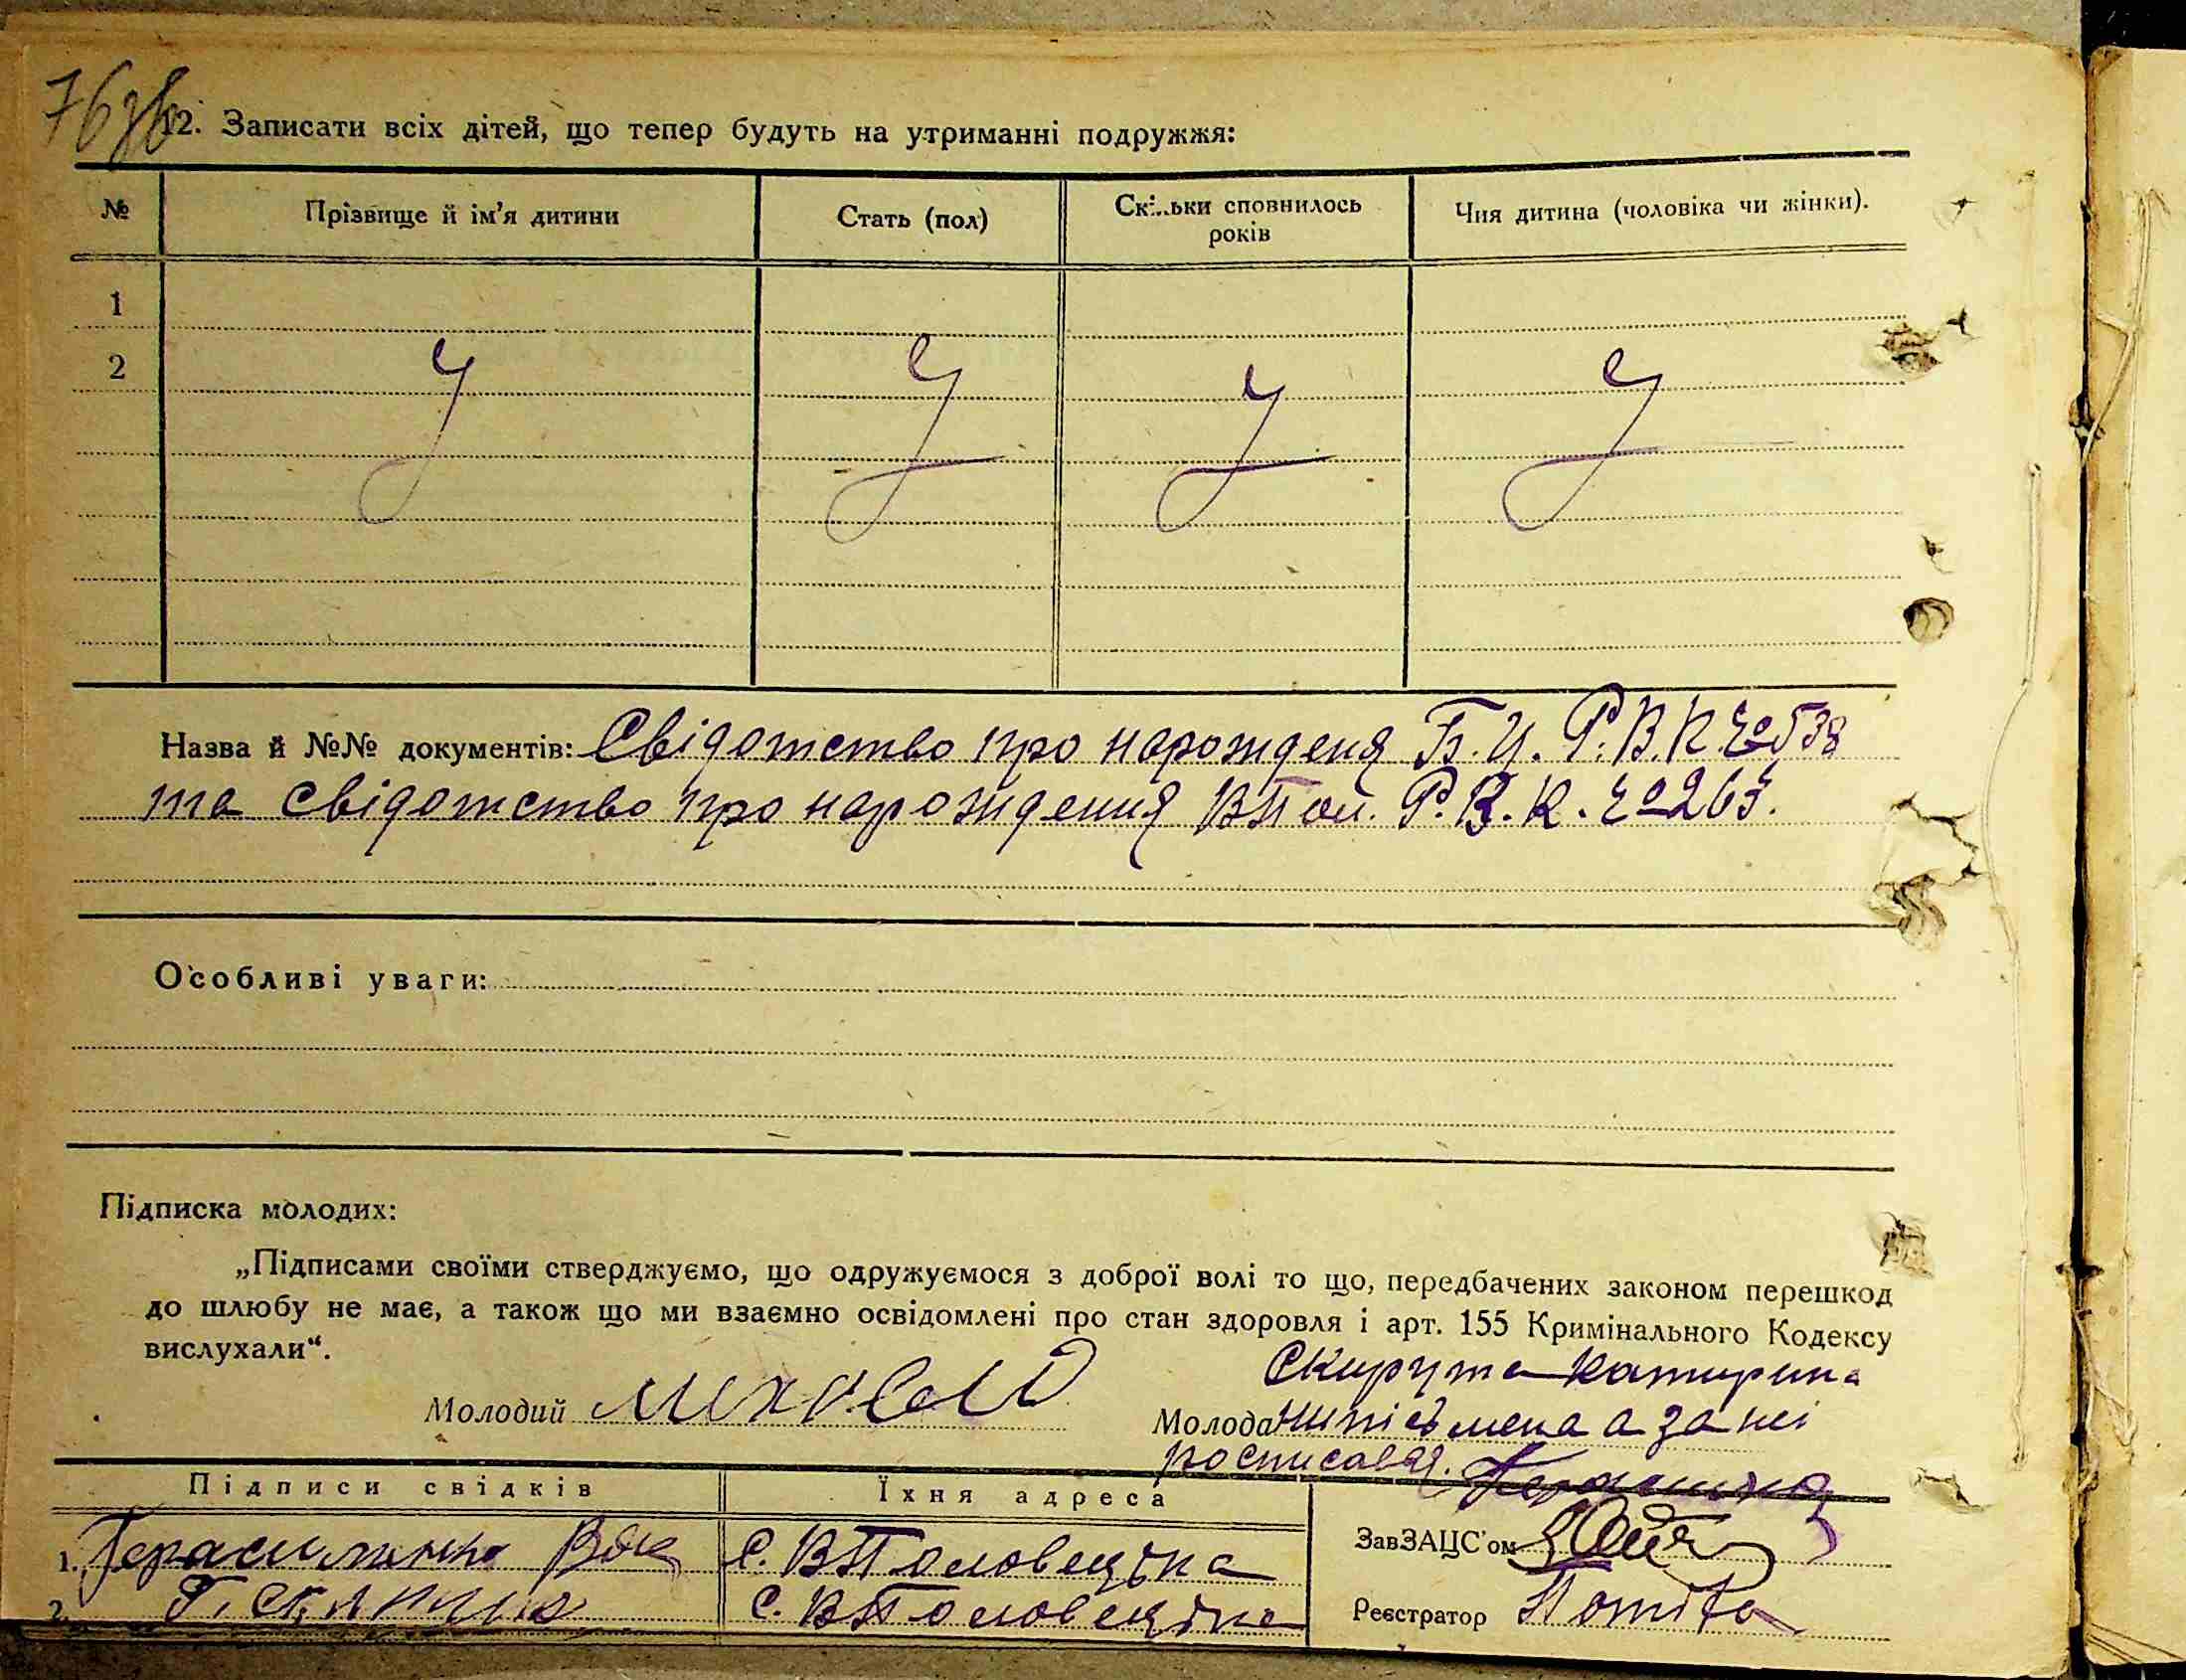 76зв
12. Записати всіх дітей, що тепер будуть на утриманні подружжя:
№ Прізвище й ім'я дитини Стать (пол) Скільки сповнилось років Чия дитина (чоловіка чи жінки).
1
2
Назва й №№ документів: Свідотство про нарожденя Б.Ц.Р.В.К. № 538
та свідотство про нарождения ВПол. Р.В.К. №
Особливі уваги:
Підписка молодих:
„Підписами своїми стверджуємо, що одружуємося з доброї волі то що, передбачених законом перешкод
до шлюбу не має, а також що ми взаємно освідомлені про стан здоровля і арт. 155 Кримінального Кодексу
вислухали“.
Скирута Катирина
Молодий Молода
а за неі
росписався.
Підписи свідків Їхня адреса
ЗавЗАЦС'ом
1. с. ВПоловецька
2. с. ВПоловецька
Реєстратор